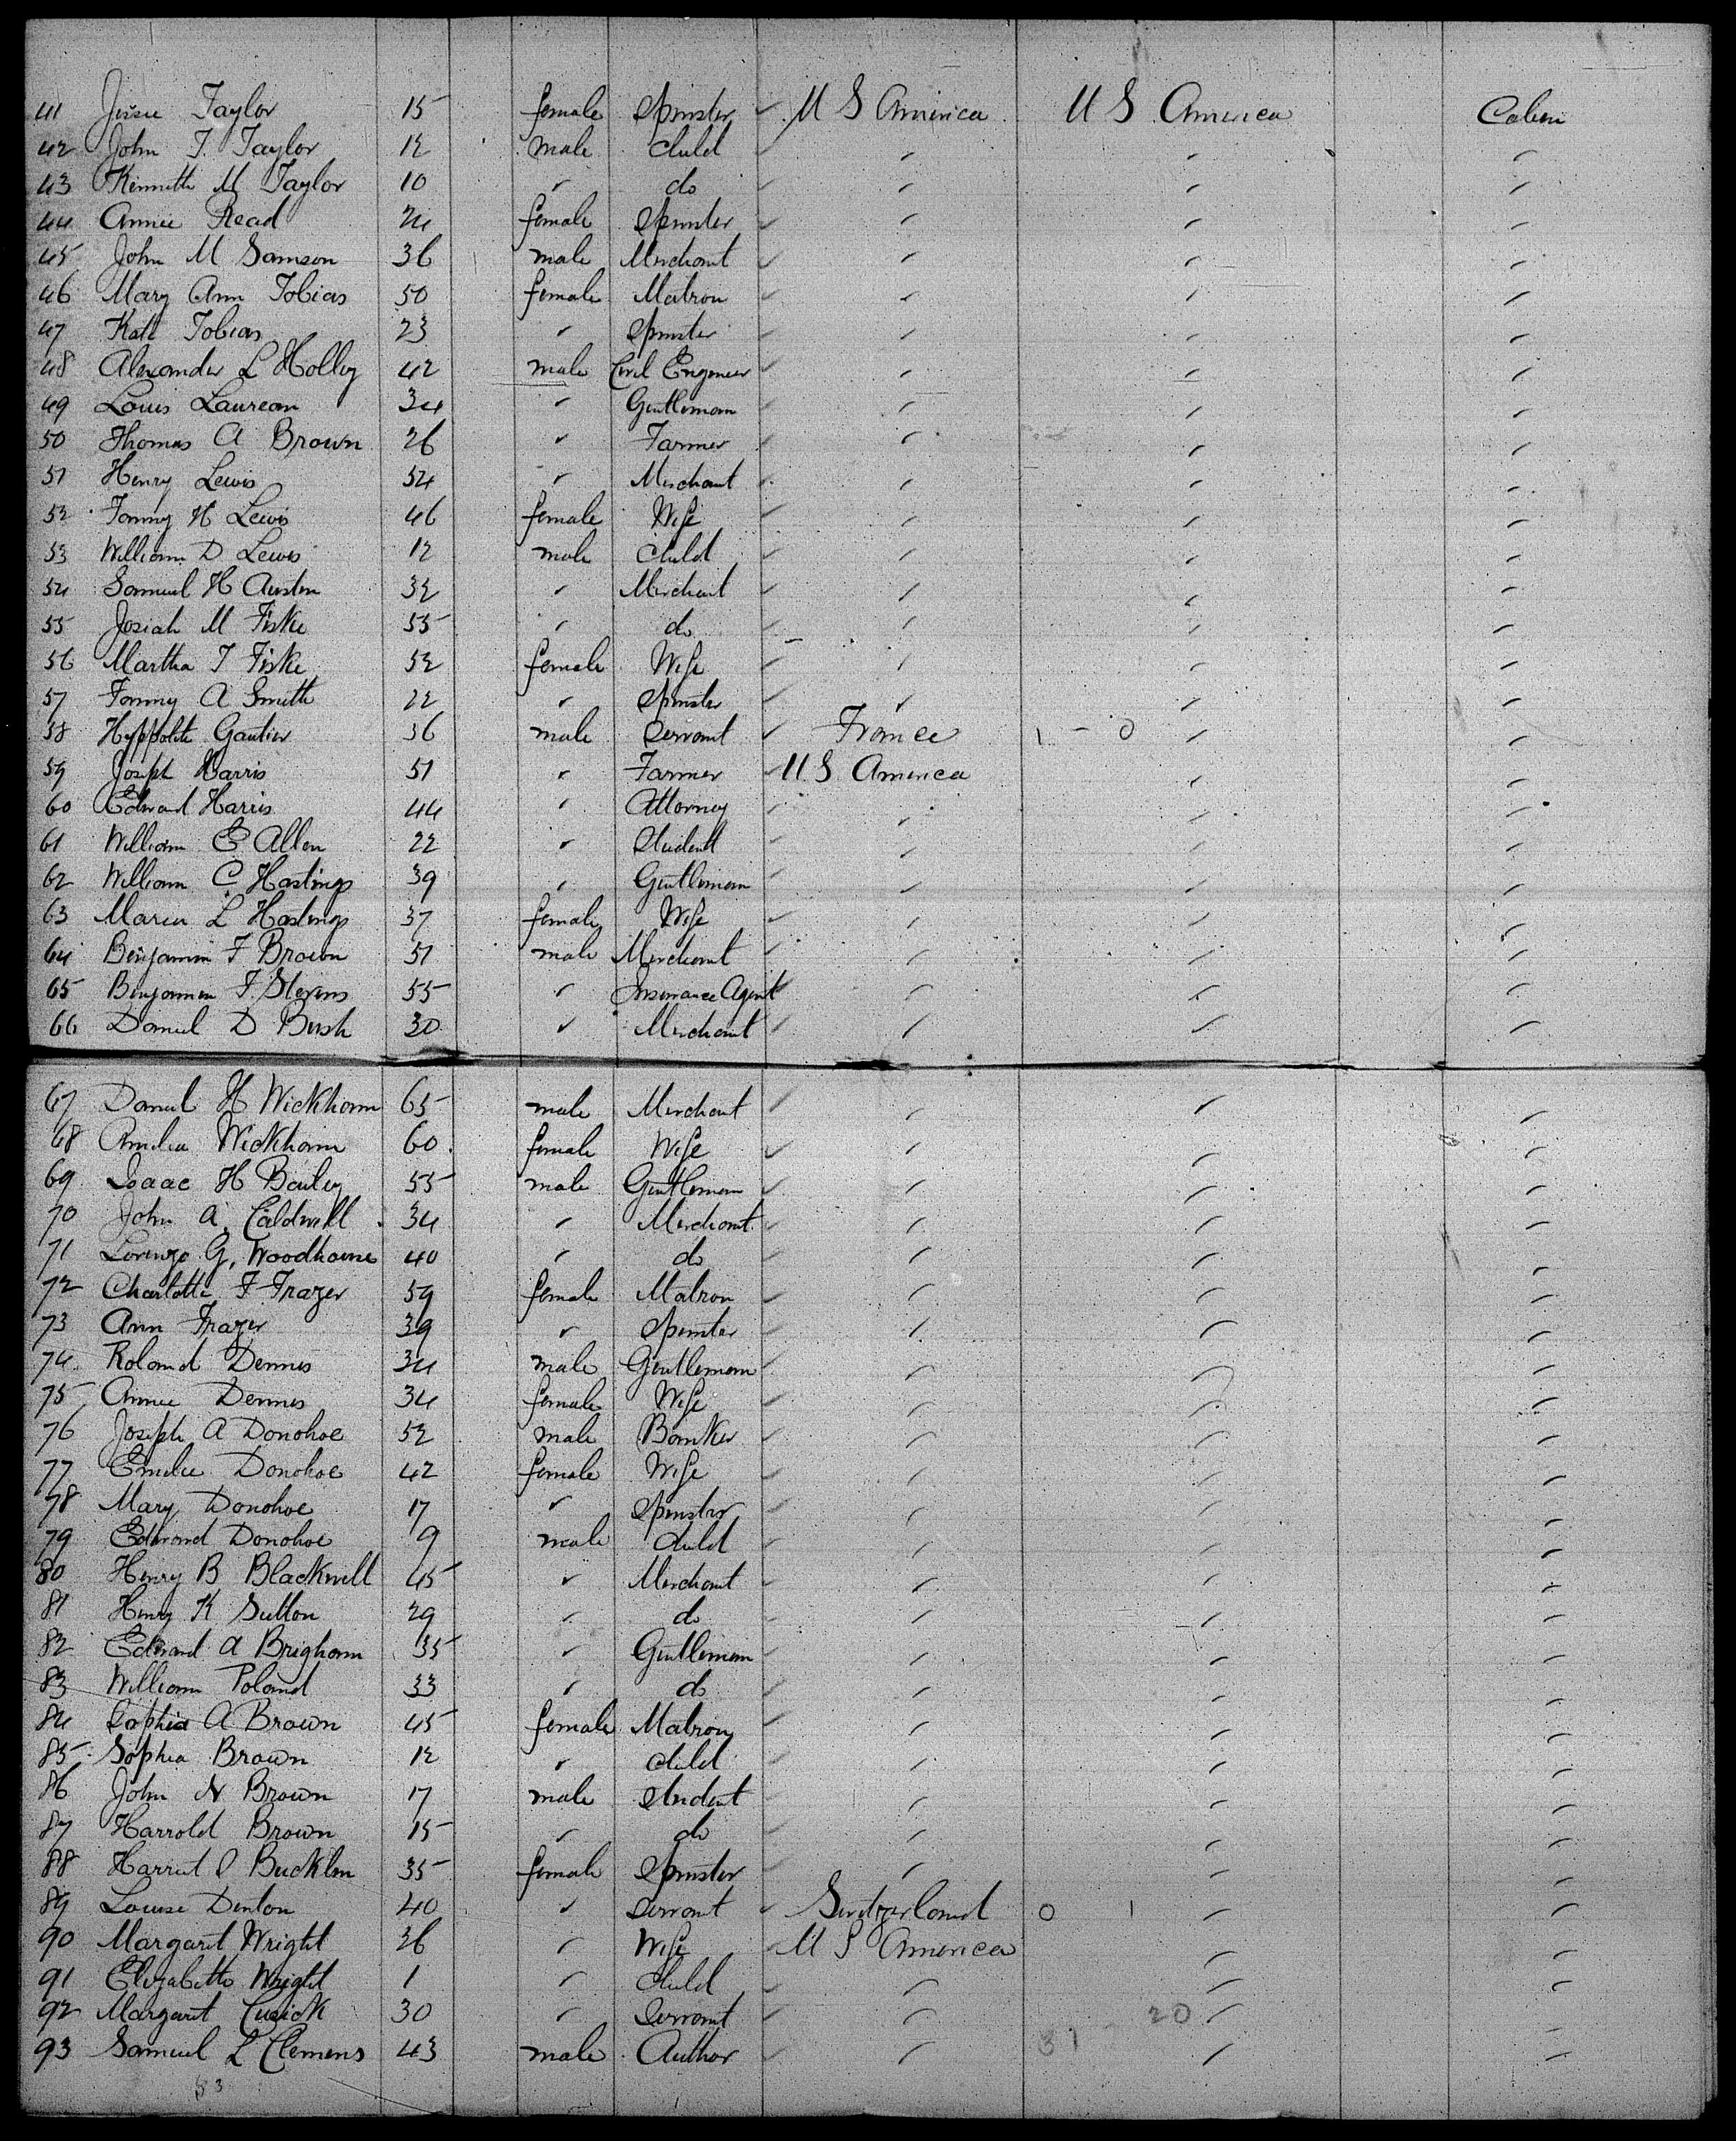 41 Jessie Taylor 15 female Spinster U S America U S America Cabin
42 John T. Taylor 12 male Child " " "
43 Kenneth M Taylor 10 " do " " "
44 Annie Read 24 female Spinster " " "
45 John M Samson 36 male Merchant " " "
46 Mary Ann Tobias 50 female Matron " " "
47 Kate Tobias 23 " Spinster " " "
48 Alexander L Holley 42 male Civil Engineer " " "
49 Louis Laurean 34 " Gentleman " " "
50 Thomas A Brown 26 " Farmer " " "
51 Henry Lewis 54 " Merchant " " "
52 Fanny H Lewis 46 female Wife " " "
53 William D Lewis 12 male Child " " "
54 Samuel H Austin 32 " Merchant " " "
55 Josiah M Fiske 55 " do " " "
56 Martha T Fiske 52 female Wife " " "
57 Fanny A Smith 22 " Spinster " " "
58 Hyppolite Gautier 36 male Servant France 1 - 0 " "
59 Joseph Harris 51 " Farmer U S America " "
60 Edward Harris 44 " Attorney " " "
61 William E Allen 22 " Student " " "
62 William C Hastings 39 " Gentleman " " "
63 Maria L Hastings 37 female Wife " " "
64 Benjamin F Brown 51 male Merchant " " "
65 Benjamin F. Stevens 55 " Insurance Agent " " "
66 Daniel D Bush 30 " Merchant " " "
67 Daniel H Wickham 65 male Merchant " " "
68 Amelia Wickham 60 female Wife " " "
69 Isaac H Bailey 55 male Gentleman " " "
70 John A. Caldwell 34 " Merchant " " "
71 Lorenzo G. Woodhouse 40 " do " " "
72 Charlotte F Frazer 59 female Matron " " "
73 Ann Frazer 39 " Spinster " " "
74 Roland Dennis 34 male Gentleman " " "
75 Annie Dennis 34 female Wife " " "
76 Joseph A Donohoe 52 male Banker " " "
77 Emilie Donohoe 42 female Wife " " "
78 Mary Donohoe 17 " Spinster " " "
79 Edward Donohoe 9 male Child " " "
80 Henry B Blackwell 45 " Merchant " " "
81 Henry K Sutton 29 " do " " "
82 Edward A Brigham 35 " Gentleman " " "
83 William Poland 33 " do " " "
84 Sophia A Brown 45 female Matron " " "
85 Sophia Brown 12 " Child " " "
86 John N Brown 17 male Student " " "
87 Harrold Brown 15 " do " " "
88 Harriet Bucklin 35 female Spinster " " "
89 Louise Denton 40 " Servant Switzerland 0 1 " "
90 Margaret Wright 36 " Wife U S America " "
91 Elizabeth Wright 1 " Child " " "
92 Margaret Cusick 30 " Servant " 20 " "
93 Samuel L Clemens 43 male Author " 31 " "